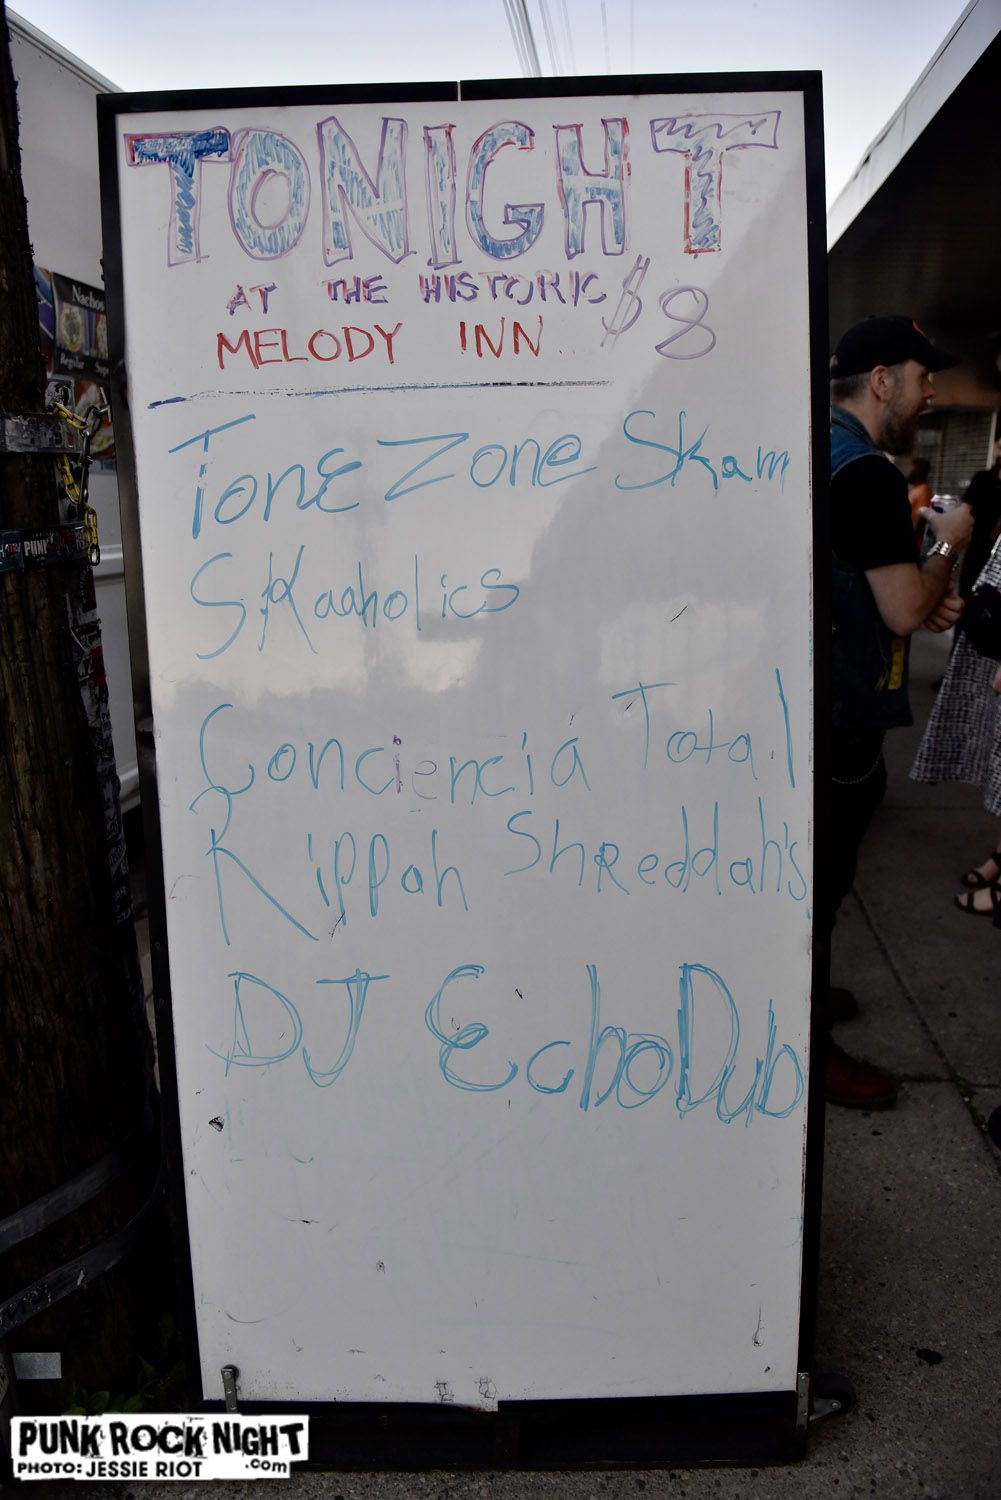 TONIGHT
AT THE HISTORIC
MELODY INN $8
Tone Zone Skam
SKaaholics
Conciencia Total
Rippah Shreddah's
DJ EchoDub
Nachos
PUNK
PUNK ROCK NIGHT
.com
PHOTO: JESSIE RIOT